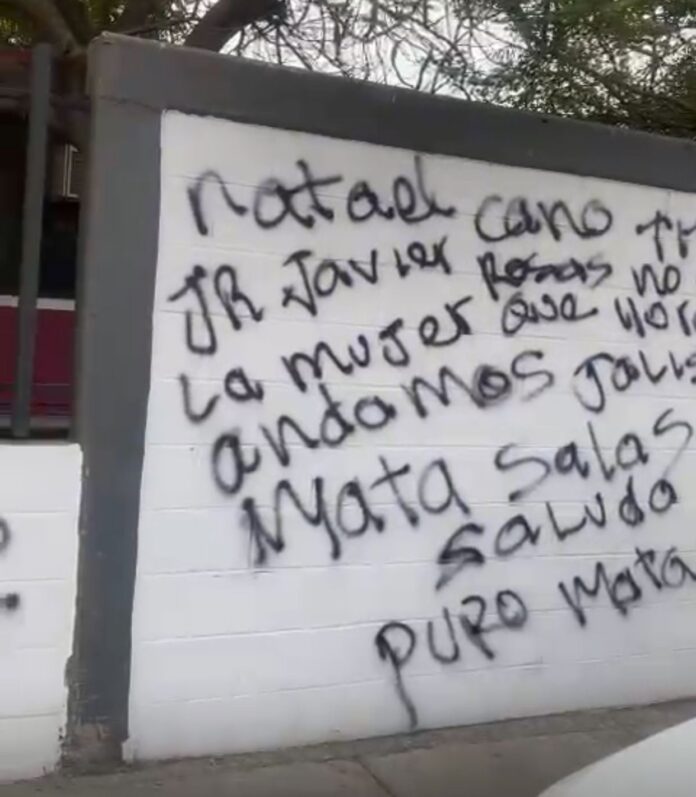 rafael cano
JR Javier Rosas no
La mujer que
andamos
Mata Salas
saludo
puro Mata